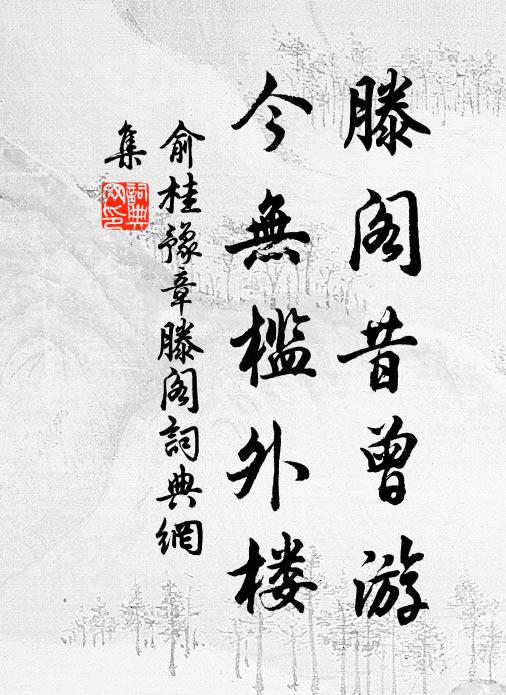 滕阁昔曾游
今無槛外楼
俞桂豫章滕阁詞典網
集
詞典網印